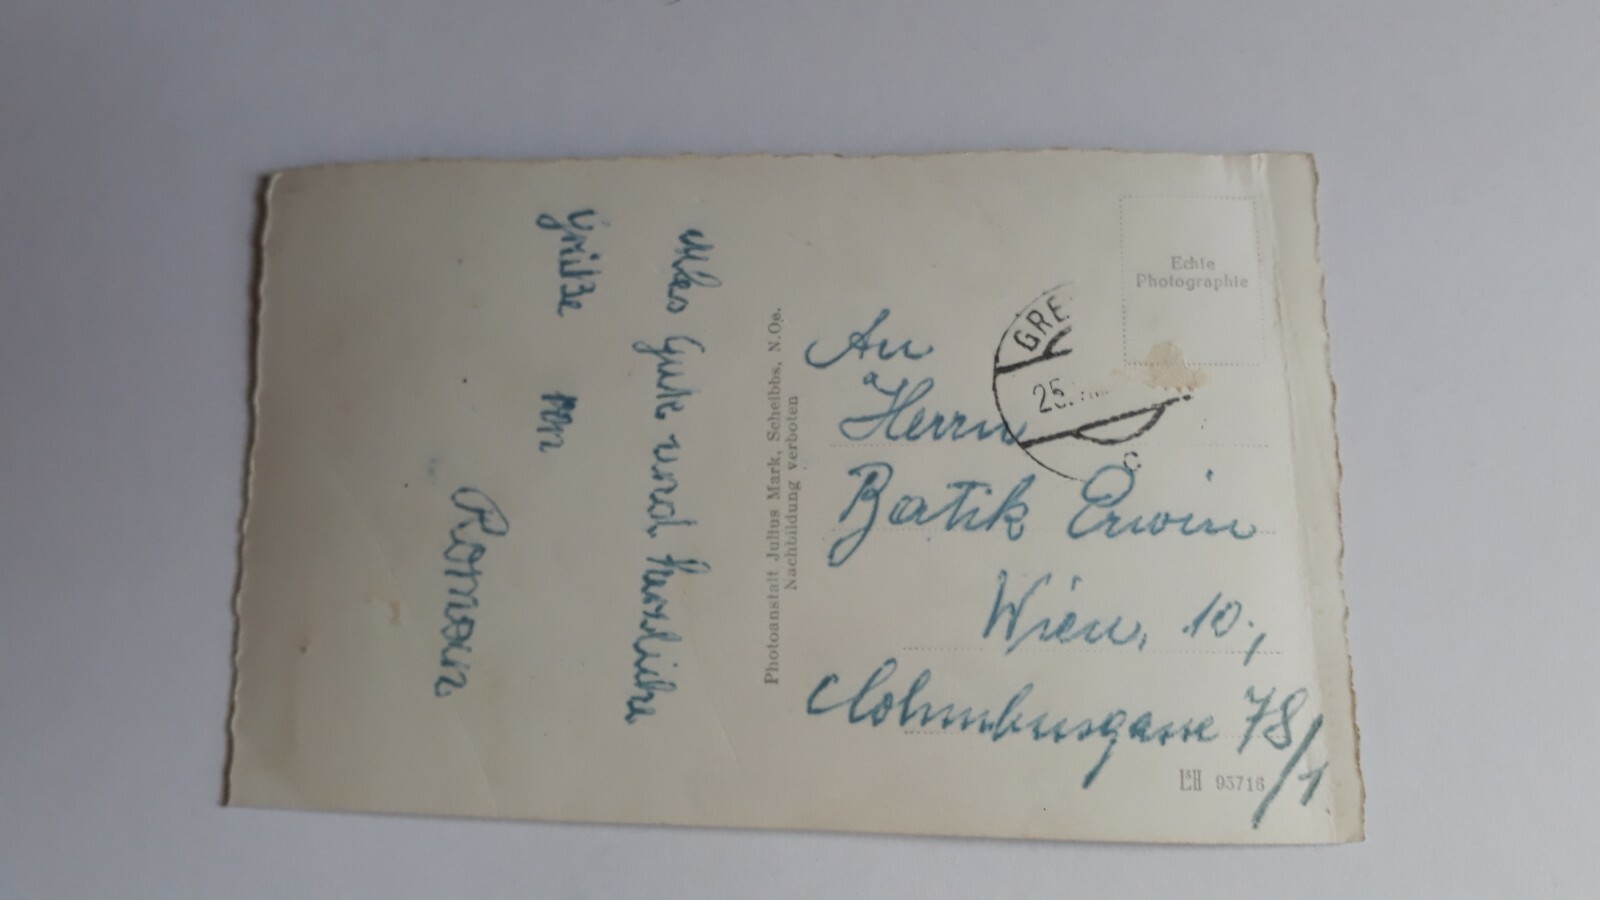 Alles Gute und herzliche
Grüße von
Roman
Photoanstalt Julius Mark, Scheibbs, N.Oe.
Nachbildung verboten
Echte
Photographie
GRE
25.
An
Herrn
Batik Erwin
Wien, 10.,
Columbusgasse 78/1
95716